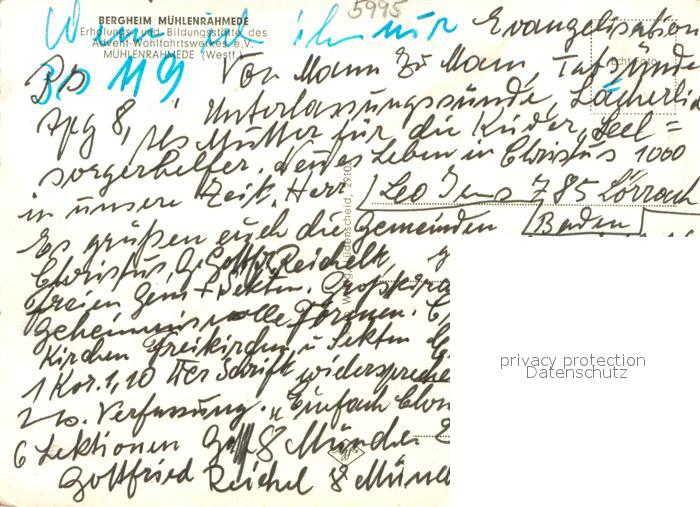 5995
BERGHEIM MÜHLENRAHMEDE
Erholungs- und Bildungsstätte des
Advent-Wohlfahrtswerkes e.V.
MÜHLENRAHMEDE (Westf.)
Wenn ich ihn nur Evangelisation
Ps 119 Von Mann zu Mann, Tatsünde
Echt Foto
Apg 8, Unterlassungssünde, Lächerlich
Mutter für die Kinder, Seel=
sorgerhelfer. Neues Leben in Christus 1000
in unsere Zeit. Herr Leo Jens 785 Lörrach
Es grüßen euch die Gemeinden Baden
Christus, G. Gottfr. Reichelt,
freien Gem + Sekten.
Geheimnisvolle Formen.
Kirchen Freikirchen u Sekten
1 Kor. 1,10 Der Schrift widerspreche
Verfassung. "Einfach
6 Lektionen 8 Münche
Gottfried Reichel 8 Münc
Lüdenscheid, 2910
privacy protection
Datenschutz